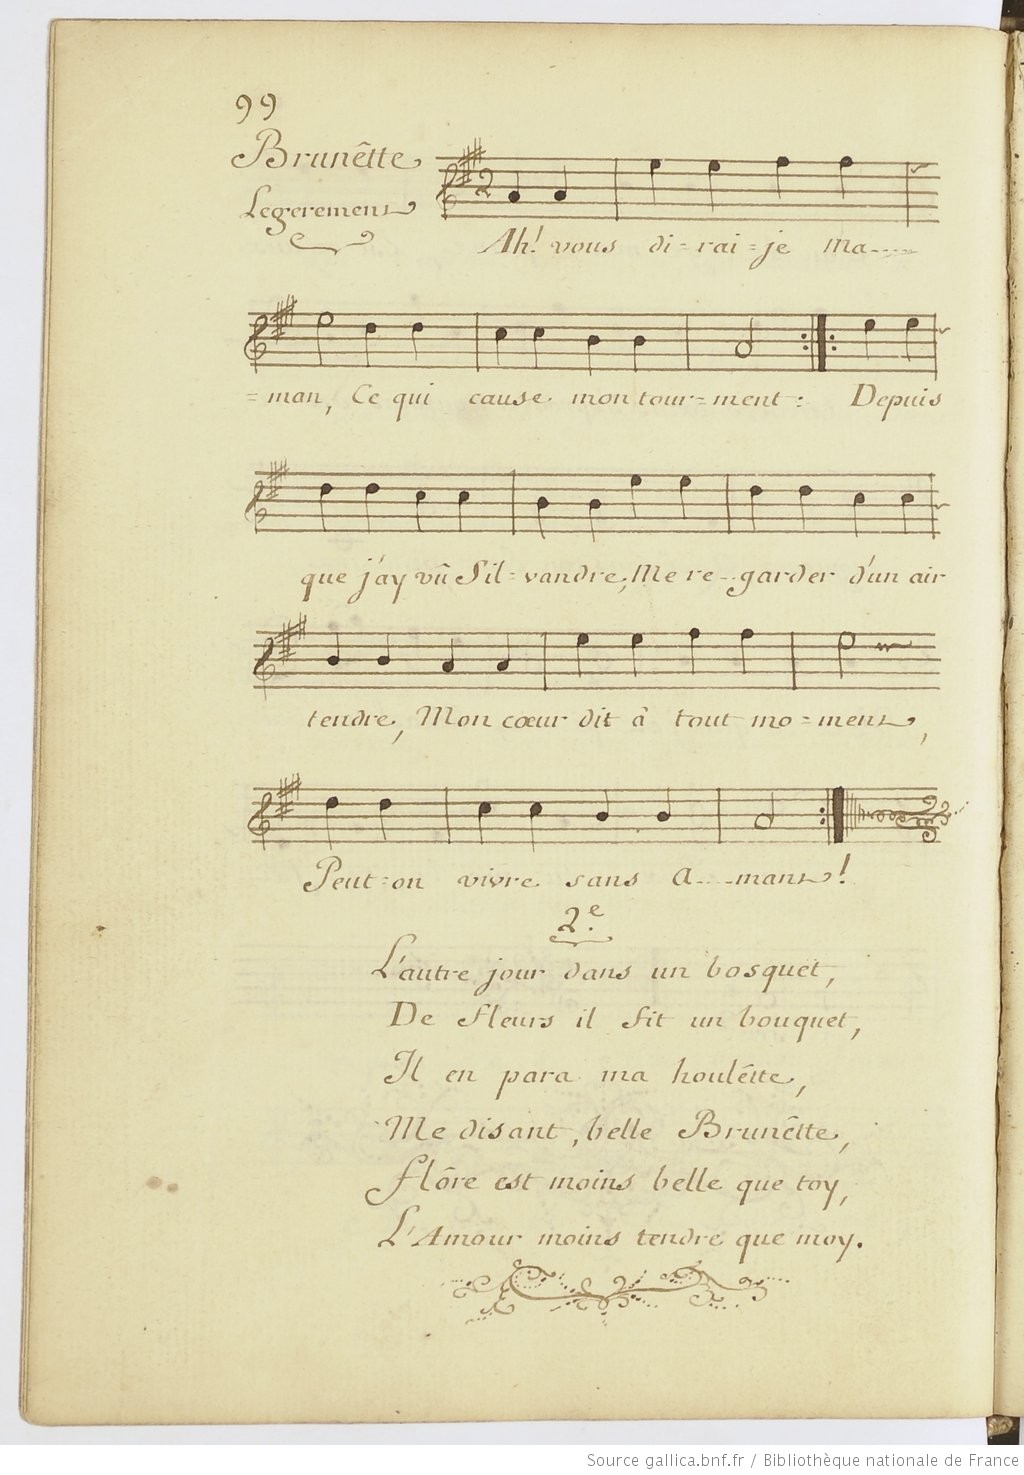 99
Brunêtte
Legerement
2
Ah! vous di=rai=je ma----
=man, Ce qui cause mon tour=ment: Depuis
que j'ay vû Sil=vandre, Me re--garder d'un air
tendre, Mon cœur dit à tout mo=ment,
Peut=on vivre sans A----mant!
2.e
L'autre jour dans un bosquet,
De fleurs il fit un bouquet,
Il en para ma houlêtte,
Me disant, belle Brunêtte,
Flôre est moins belle que toy,
L'Amour moins tendre que moy.
Source gallica.bnf.fr / Bibliothèque nationale de France